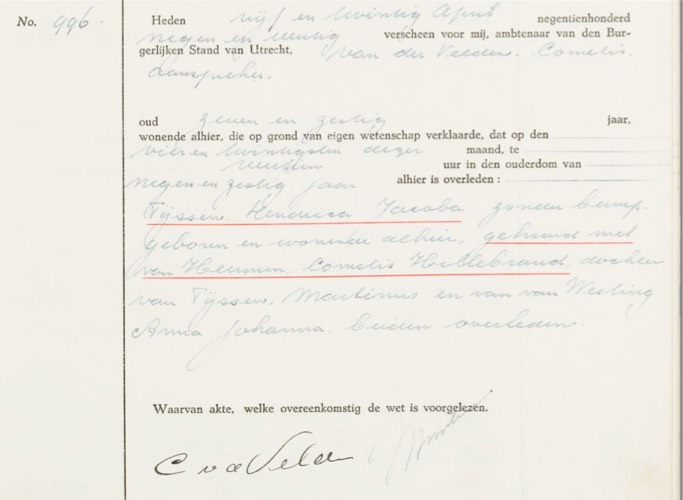 No. 996.
Heden vijf en twintig April negentienhonderd
negen en veertig verscheen voor mij, ambtenaar van den Bur-
gerlijken Stand van Utrecht, van der Velden. Cornelis.
aanspreker.
oud zeven en zestig jaar,
wonende alhier, die op grond van eigen wetenschap verklaarde, dat op den
vier en twintigsten dezer maand, te
uur in den ouderdom van
negen en zestig jaar alhier is overleden :
Tijssen. Hendrica Jacoba. zonder beroep.
geboren en wonende alhier. gehuwd met
van Heumen, Cornelis Hillebrand dochter
van Tijssen. Martinus en van van Wesling
Anna Johanna. beiden overleden.
Waarvan akte, welke overeenkomstig de wet is voorgelezen.
C v d Velden